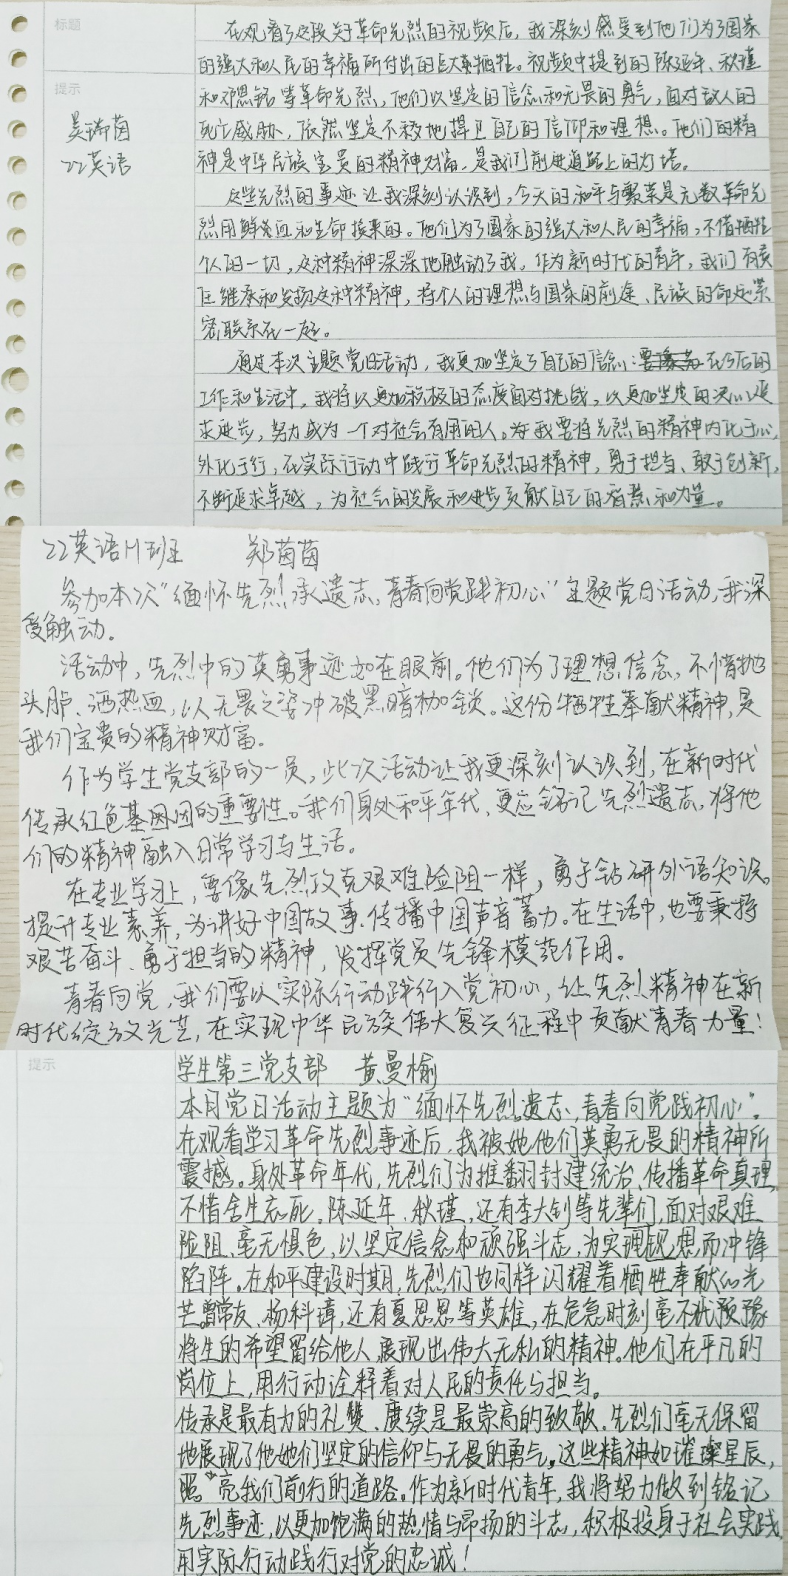 标题
在观看了这段关于革命先烈的视频后，我深刻感受到他们为了国家
的强大和人民的幸福所付出的巨大牺牲。视频中提到的陈延年、秋瑾
提示
和邓恩铭等革命先烈，他们以坚定的信念和无畏的勇气，面对敌人的
吴瑞茵
死亡威胁，依然坚定不移地捍卫自己的信仰和理想。他们的精
22英语
神是中华民族宝贵的精神财富，是我们前进道路上的灯塔。
这些先烈的事迹让我深刻认识到，今天的和平与繁荣是无数革命先
烈用鲜血和生命换来的。他们为了国家的强大和人民的幸福，不惜牺牲
个人的一切，这种精神深深地触动了我。作为新时代的青年，我们有责
任继承和发扬这种精神，将个人的理想与国家的前途、民族的命运紧
密联系在一起。
通过本次主题党日活动，我更加坚定了自己的信念：在今后的
工作和生活中，我将以更加积极的态度面对挑战，以更加坚定的决心追
求进步，努力成为一个对社会有用的人。我要将先烈的精神内化于心，
外化于行，在实际行动中践行革命先烈的精神，勇于担当、敢于创新，
不断追求卓越，为社会的发展和进步贡献自己的智慧和力量。
22英语H班 郑茵茵
参加本次“缅怀先烈承遗志，青春向党践初心”主题党日活动，我深
受触动。
活动中，先烈中的英勇事迹如在眼前。他们为了理想信念，不惜抛
头胪、洒热血，以无畏之姿冲破黑暗枷锁。这份牺牲奉献精神，是
我们宝贵的精神财富。
作为学生党支部的一员，此次活动让我更深刻认识到，在新时代
传承红色基因的重要性。我们身处和平年代，更应铭记先烈遗志，将他
们的精神融入日常学习与生活。
在专业学习上，要像先烈攻克艰难险阻一样，勇于钻研外语知识。
提升专业素养，为讲好中国故事、传播中国声音蓄力。在生活中，也要秉持
艰苦奋斗、勇于担当的精神，发挥党员先锋模范作用。
青春向党，我们要以实际行动践行入党初心，让先烈精神在新
时代绽放光芒，在实现中华民族伟大复兴征程中贡献青春力量！
提示
学生第三党支部 黄曼榆
本月党日活动主题为“缅怀先烈遗志，青春向党践初心”。
在观看学习革命先烈事迹后，我被她他们英勇无畏的精神所
震撼。身处革命年代，先烈们为推翻封建统治、传播革命真理，
不惜舍生忘死。陈延年、秋瑾，还有李大钊等先辈们，面对艰难
险阻，毫无惧色，以坚定信念和顽强斗志，为实理现思而冲锋
陷阵。在和平建设时期，先烈们也同样闪耀着牺牲奉献的光
芒。常友、杨科璋，还有夏思思等英雄，在危急时刻毫不犹预豫
将生的希望留给他人，展现出伟大无私的精神。他们在平凡的
岗位上，用行动诠释着对人民的责任与担当。
传承是最有力的礼赞、赓续是最崇高的致敬。先烈们毫无保留
地展现了他她们坚定的信仰与无畏的勇气。这些精神如璀璨星辰，
照亮我们前行的道路。作为新时代青年，我将努力做到铭记
先烈事迹，以更加饱满的热情与昂扬的斗志，积极投身于社会实践，
用实际行动践行对党的忠诚！